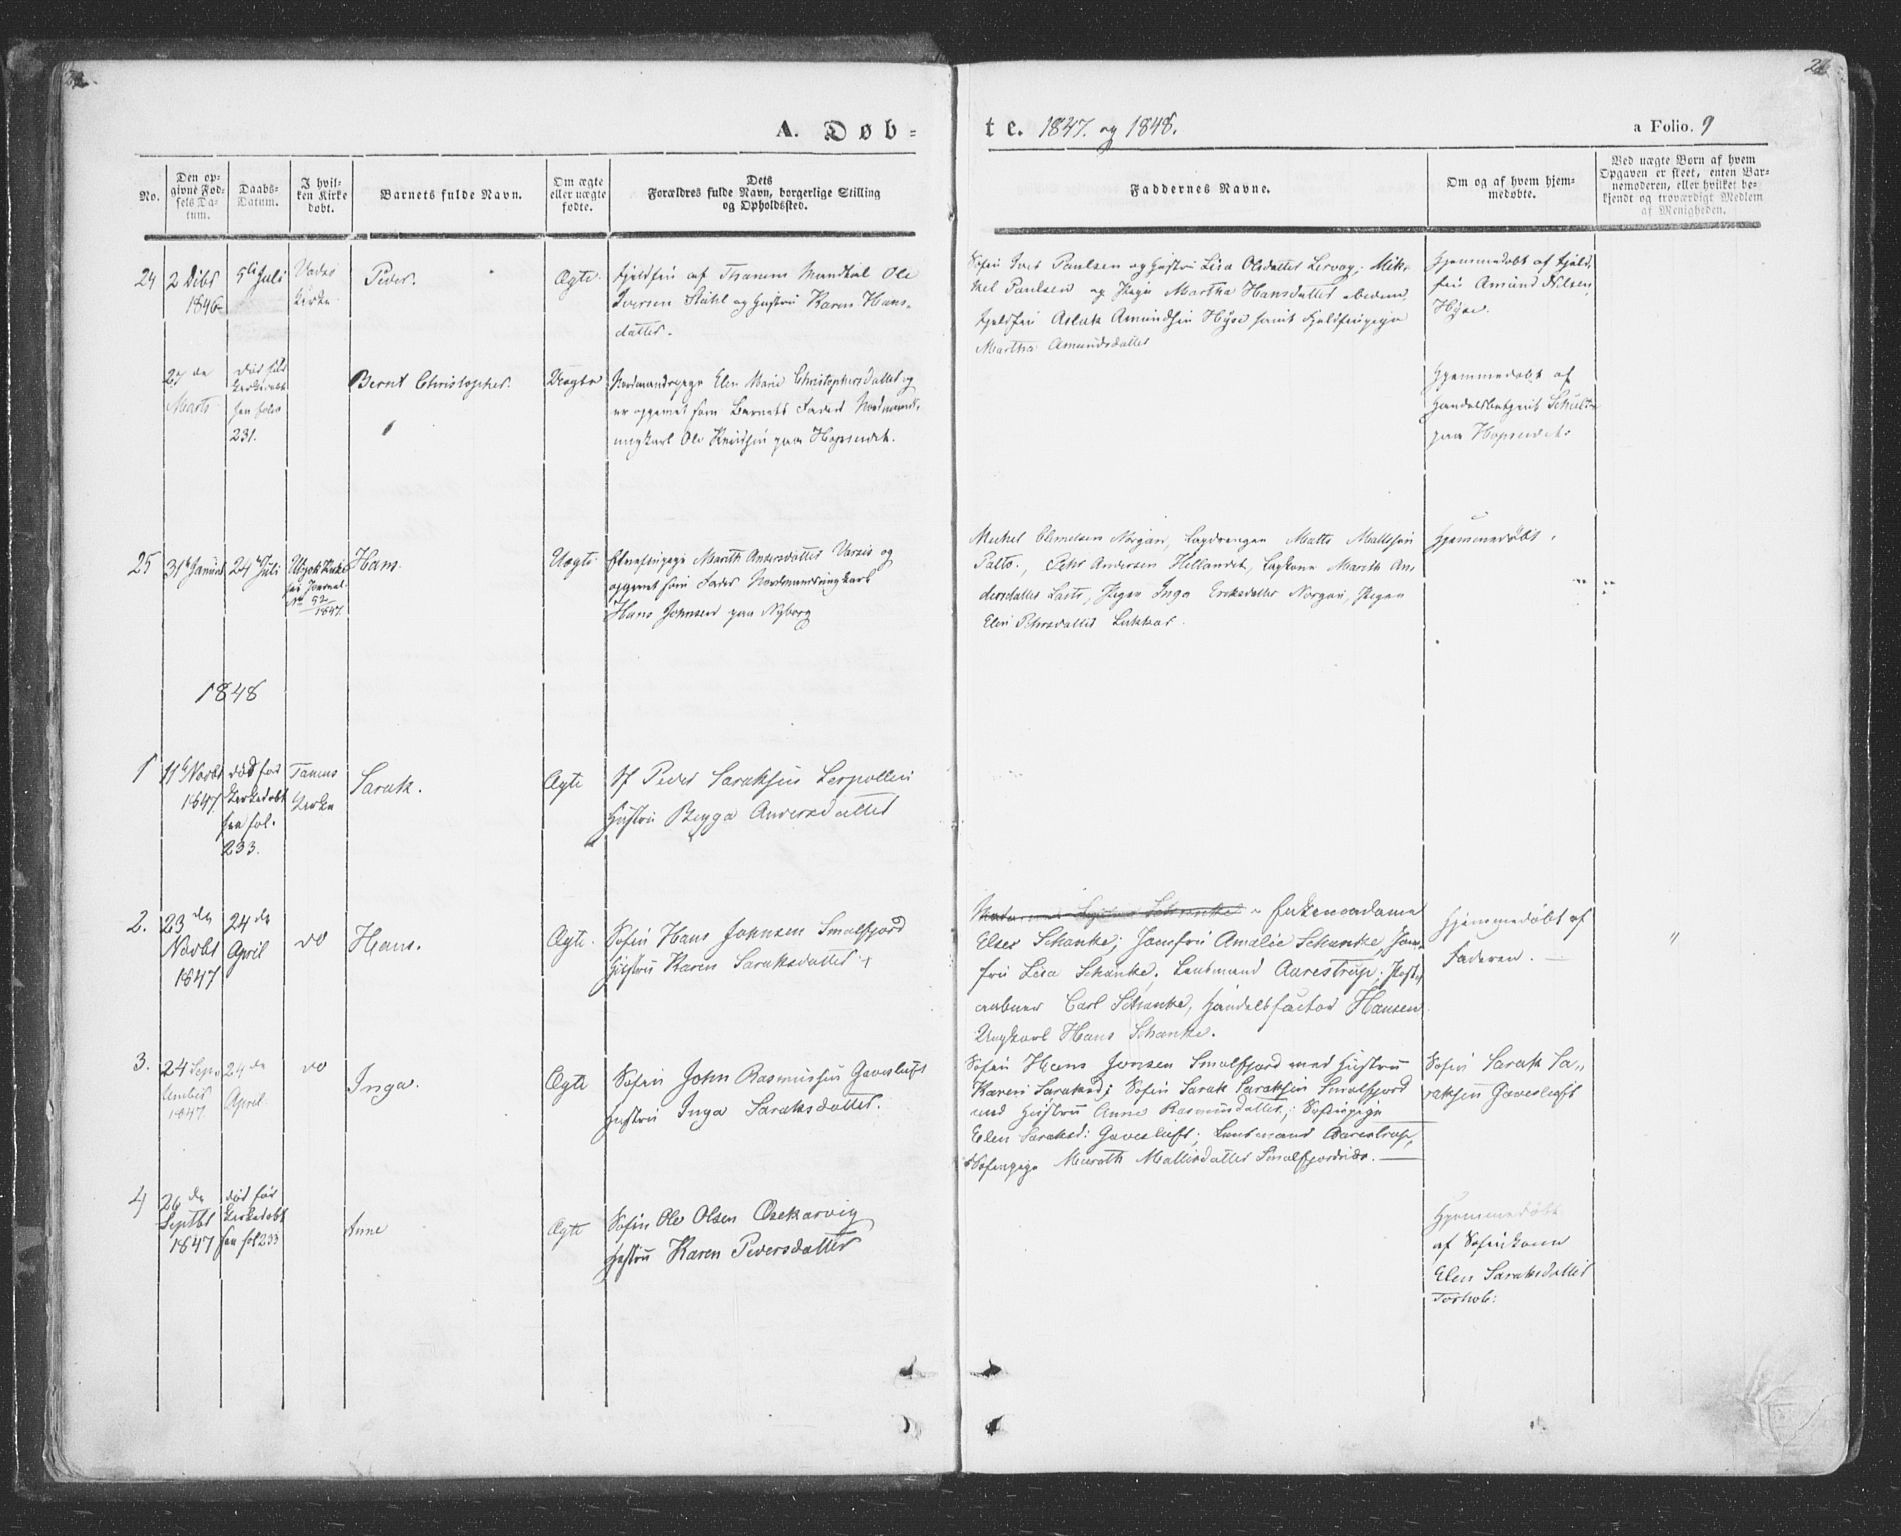 A. Døb-
te. 1847. og 1848.
a Folio. 9
No.
Den op-
givne Fød-
sels Da-
tum.
Daabs-
Datum.
I hvil-
ken Kirke
døbt.
Barnets fulde Navn.
Om ægte
eller uægte
fødte.
Dets
Forældres fulde Navn, borgerlige Stilling
og Opholdssted.
Faddernes Navne.
Om og af hvem hjem-
medøbte.
Ved uægte Børn af hvem
Opgaven er skeet, enten Bar-
nemoderen, eller hvilket be-
kjendt og troværdigt Medlem
af Menigheden.
24
2 Decbr
1846
5te Juli
Vadsø
Kirke
Peder.
Ægte.
Fjeldfin af Thanens Manntal Ole
Iversen Ståhl og Hustru Karen Hans-
datter.
Søfin Iver Paulsen og Hustru Lisa Olsdatter Lervog, Mik-
kel Paulsen og Pige Martha Hansdatter ibidem,
Fjeldfin Aslak Amundsen Højse samt Fjeldfinpige
Martha Amundsdatter
Hjemmedøbt af Fjeld-
fin Amund Nilsen
27de
Marts
død før
Kirkedaab
see folio
231.
Bernt Christopher.
Uægte
Nordmandspige Elen Marie Christophersdatter og
er opgivet som Barnets Fader Nordmands-
ungkarl Ole Knudsen paa Hopseidet.
Hjemmedøbt af
Handelsbetjent Schultz
paa Hopseidet.
25
31te Januar
24de Juli
see Journal
No 52
1847
Hans
Uægte
Marith Andersdatter og
opgivet som Fader Nordmandsungkarl
Hans Johnsen paa Nyborg
Mikkel Clemetsen Norgan, Lapdrengen Matts Mathsen
Anders Andersen Lapkone Marith An-
dersdatter Pigen Inga Eriksdatter Norgan, Pigen
Elen Pehrsdatter
Hjemmedøbt.
1848
1
11te Novbr
1847
død før
Kirkedøbt
see fol.
233.
Tanens
Kirke
Sarak.
Ægte
Af Peder Saraksen Lerpollen
Hustru Birgga Andersdatter
2.
23de
Novbr
1847
24de
April
do
Hans.
Ægte.
Søfin Hans Johnsen Smalfjord
Hustru Karen Saraksdatter
Enkemadame
Elser Schanke; Jomfru Amalie Schanke, Jom-
fru Lisa Schanke, Lensmand Aarestrup, Post-
aabner Carl Schanke, Handelsfactor Hansen
Ungkarl Hans Schanke.
Hjemmedøbt af
Faderen.
3.
24 Sep-
tember
1847
24de
April.
do
Inga.
Ægte
Søfin John Rasmussen Gavesluft
Hustru Inga Saraksdatter.
Søfin Hans Jonsen Smalfjord med Hustru
Karen Saraksd; Søfin Sarak Saraksen Smalfjord
med Hustru Anne Rasmusdatter, Søfinpige
Elen Saraksd: Gavesluft, Lensmand Aarestrup,
Søfinpige Marith Mathisdatter Smalfjordeide.
Søfin Sarak Sa-
raksen Gavesluft
4)
26de
Septbr
1847
død før
Kirkedøbt
see fol 233
Anne
Ægte
Søfin Ole Olsen
Hustru Karen Pedersdatter
Hjemmedøbt
af Søfinkone
Elen Saraksdatter